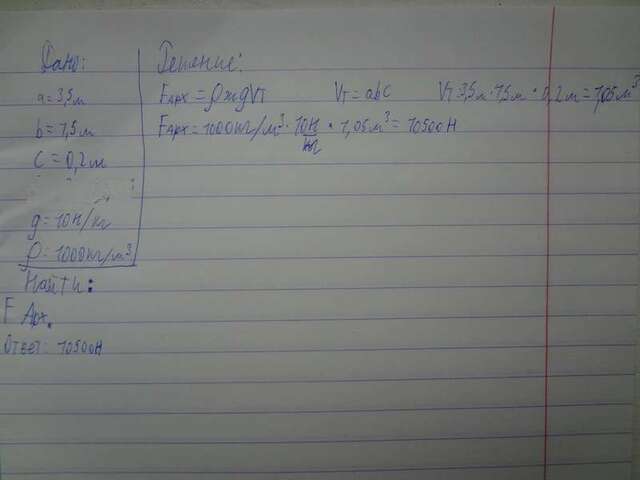 Дано:
a = 3,5 м
b = 1,5 м
c = 0,2 м
g = 10 Н/кг
ρ = 1000 кг/м³
Найти:
F Арх.
Ответ: 10500Н
Решение:
FАрх = ρжgVт Vт = abc Vт=3,5м·1,5м·0,2м=1,05м³
FАрх = 1000 кг/м³ · 10Н/кг · 1,05м³ = 10500Н